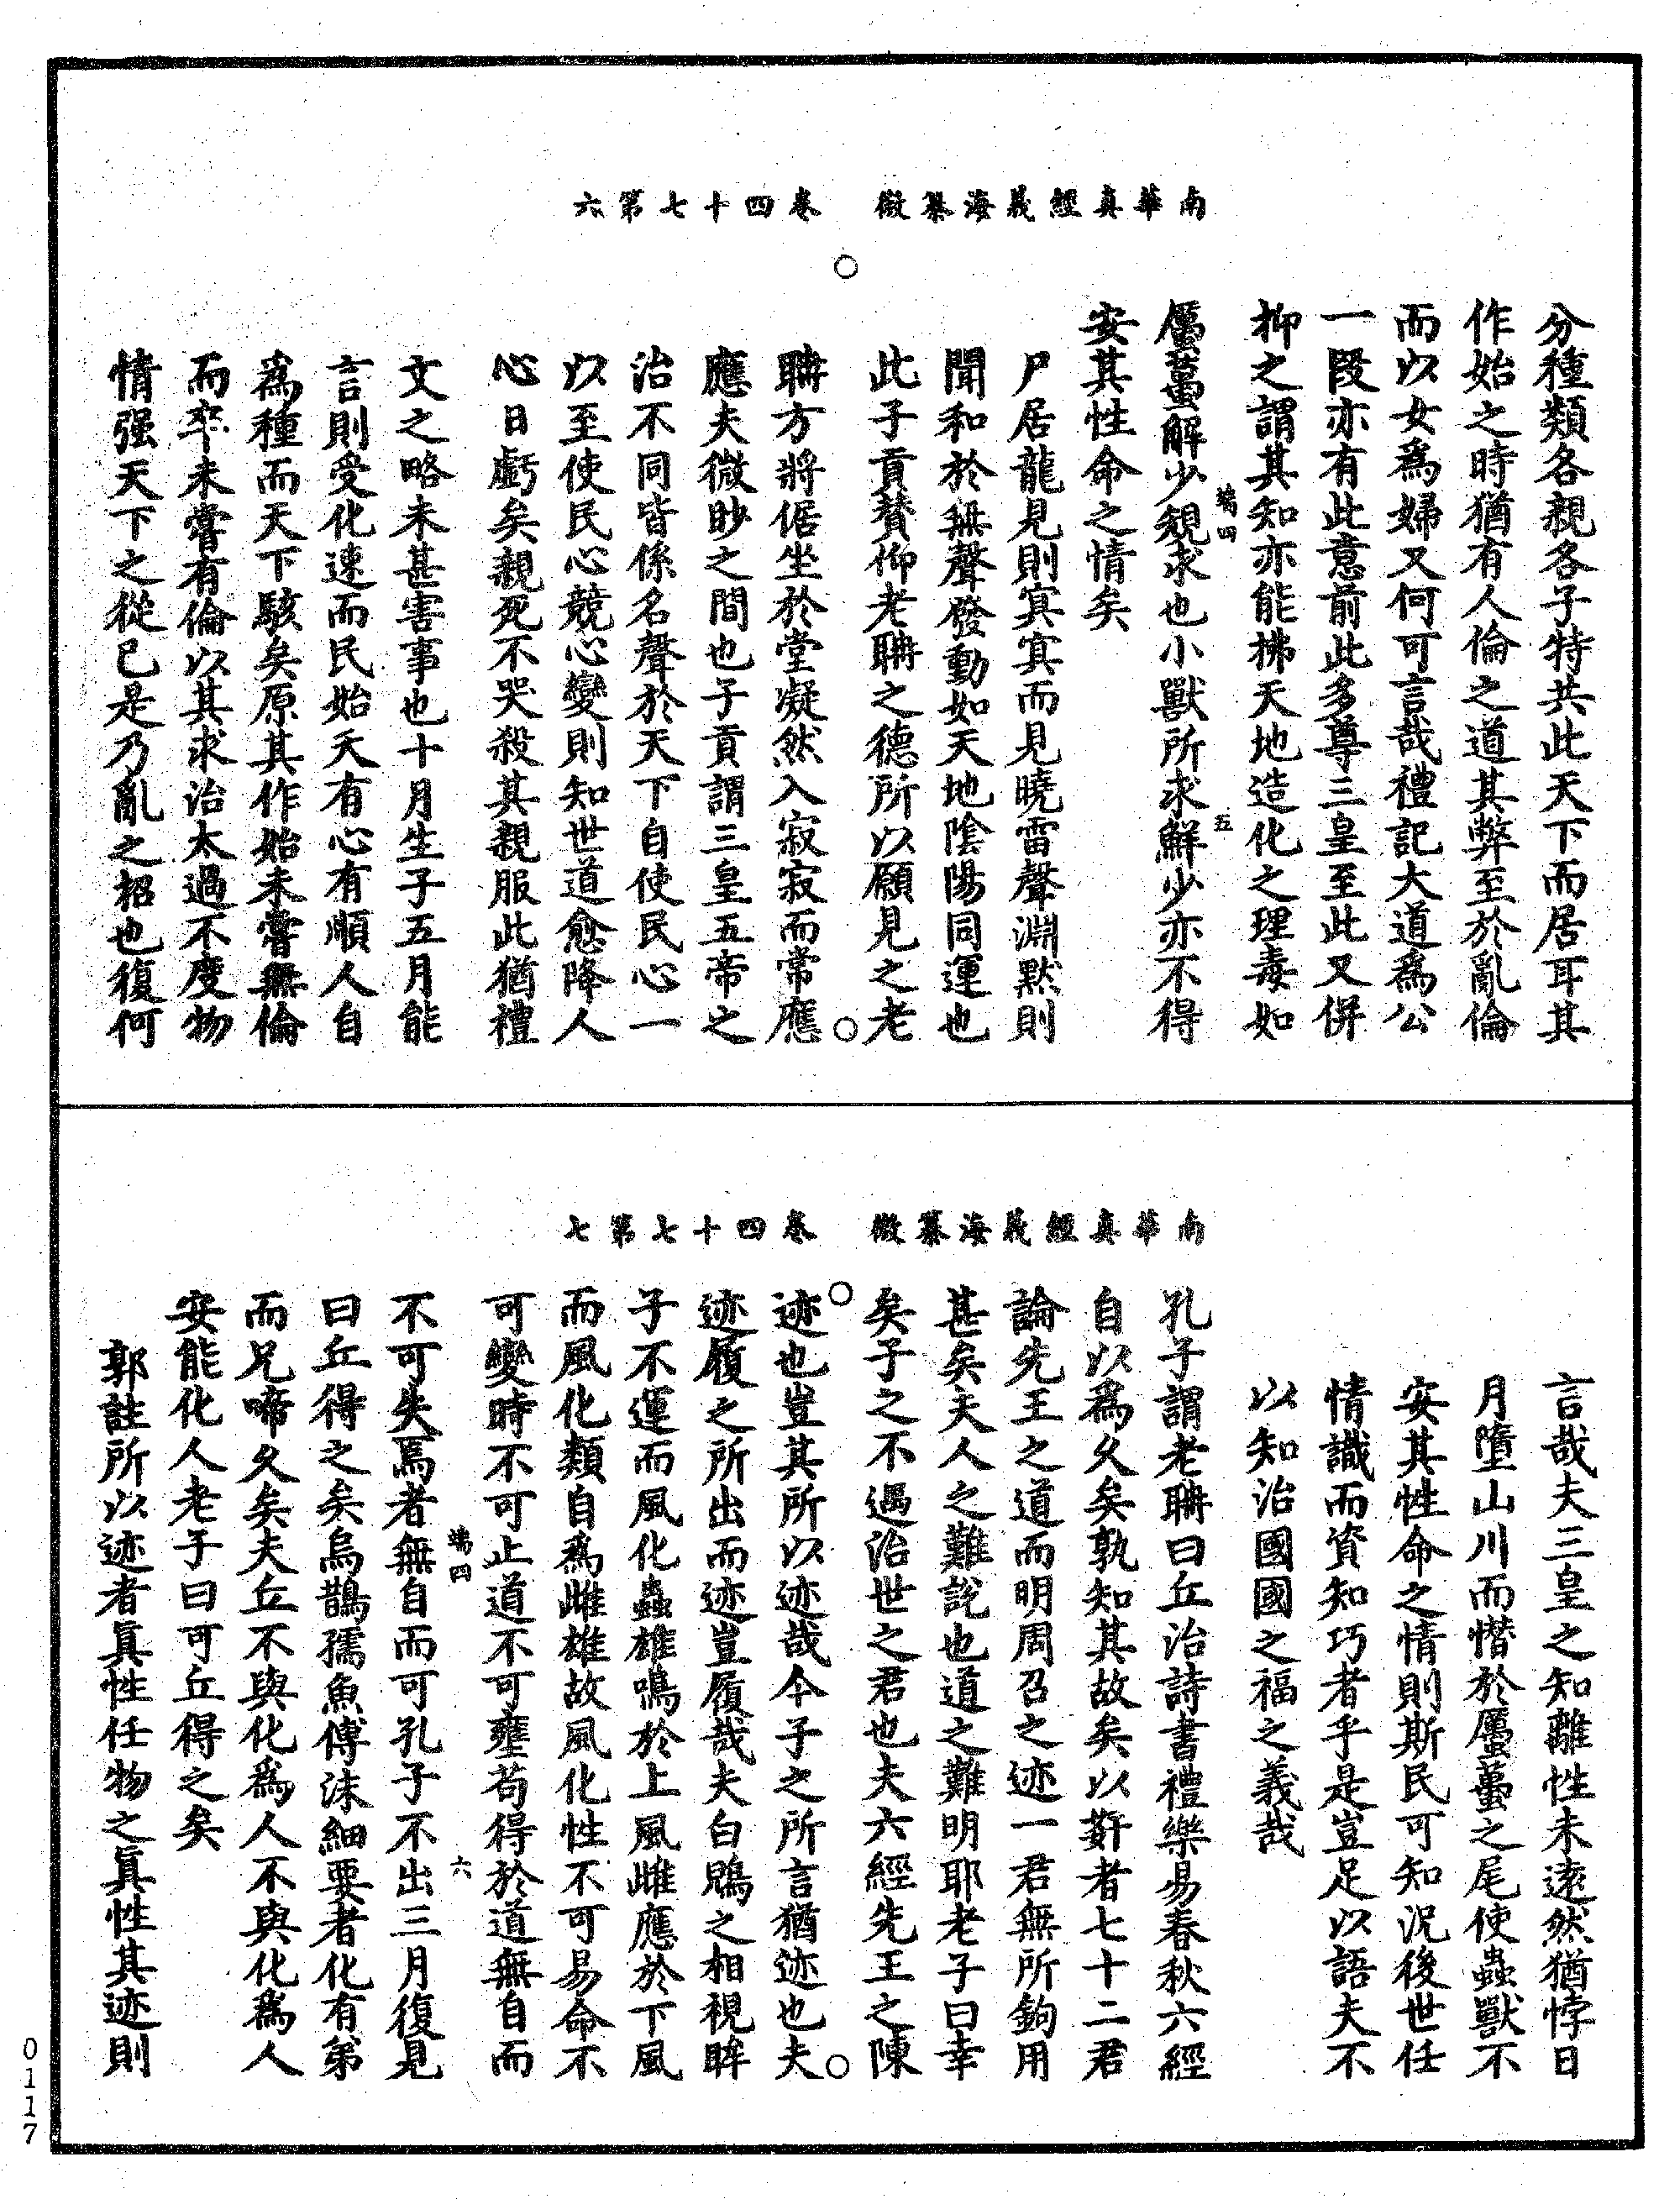 南華真經義海纂微　卷四十七第六
分種類各親各子特共此天下而居耳其
作始之時猶有人倫之道其弊至於亂倫
而以女爲婦又何可言哉禮記大道爲公
一段亦有此意前此多尊三皇至此又併
抑之謂其知亦能拂天地造化之理毒如
端四　五
厲蠆解少䂓求也小獸所求鮮少亦不得
安其性命之情矣
尸居龍見則㝠㝠而見曉雷聲淵默則
聞和於無聲發動如天地陰陽同運也
此子貢賛仰老聃之德所以願見之老
聃方將倨坐於堂凝然入寂寂而常應
應夫微眇之間也子貢謂三皇五帝之
治不同皆係名聲於天下自使民心一
以至使民心競心變則知世道愈降人
心日虧矣親死不哭殺其親服此猶禮
文之略未甚害事也十月生子五月能
言則受化速而民始夭有心有順人自
爲種而天下駭矣原其作始未嘗無倫
而卒未嘗有倫以其求治太過不度物
情强天下之從已是乃亂之招也復何
南華真經義海纂微　卷四十七第七
言哉夫三皇之知離性未遠然猶悖日
月墮山川而憯於厲蠆之尾使蟲獸不
安其性命之情則斯民可知况後世任
情識而資知巧者乎是豈足以語夫不
以知治國國之福之義哉
孔子謂老聃曰丘治詩書禮樂易春秋六經
自以爲久矣孰知其故矣以姧者七十二君
論先王之道而明周召之迹一君無所鉤用
甚矣夫人之難說也道之難明耶老子曰幸
矣子之不遇治世之君也夫六經先王之陳
迹也豈其所以迹哉今子之所言猶迹也夫
迹履之所出而迹豈履哉夫白鶂之相視眸
子不運而風化蟲雄鳴於上風雌應於下風
而風化類自爲雌雄故風化性不可易命不
可變時不可止道不可壅苟得於道無自而
端四　六
不可失焉者無自而可孔子不出三月復見
曰丘得之矣烏鵲孺魚傅沫細要者化有弟
而兄啼久矣夫丘不與化爲人不與化爲人
安能化人老子曰可丘得之矣
郭註所以迹者眞性任物之眞性其迹則
0117